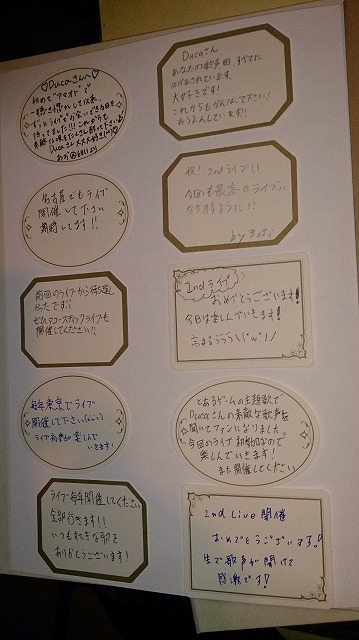 ♡Ducaさんへ♡
初めて"アマオト"で
一聴き惚れして以来、
ずっとライブでお会いできる日を
待ってました!!!これからも
素敵な歌をたくさん
Ducaさん大大大好き(♡)
Ducaさん
あなたの歌声、曲すべてに
はげまされています。
大好きです!
これからもがんばって下さい!
おうえんしています!!
名古屋でもライブ
開催して下さい
期待してます!!
祝!2ndライブ!!
今回も最高のライブに
なりますように!!
by
前回のライブから待ち遠し
かったです!!
ぜひアコースティックライブも
開催してください!!
2ndライブ
おめでとうございます!
今日は楽しんでいきます!
毎年東京でライブ
開催して下さい
ライブ 楽しんで
いきます!
とあるゲームの主題歌で
Ducaさんの素敵な歌声を
聞いてファンになりました。
今回のライブ初参加なので
楽しんでいきます!
また開催してください
ライブ毎年開催してください
全部行きます!!
いつもすてきな歌を
ありがとうございます!
2nd Live 開催
おめでとうございます!
生で歌声が聞けて
感激です!